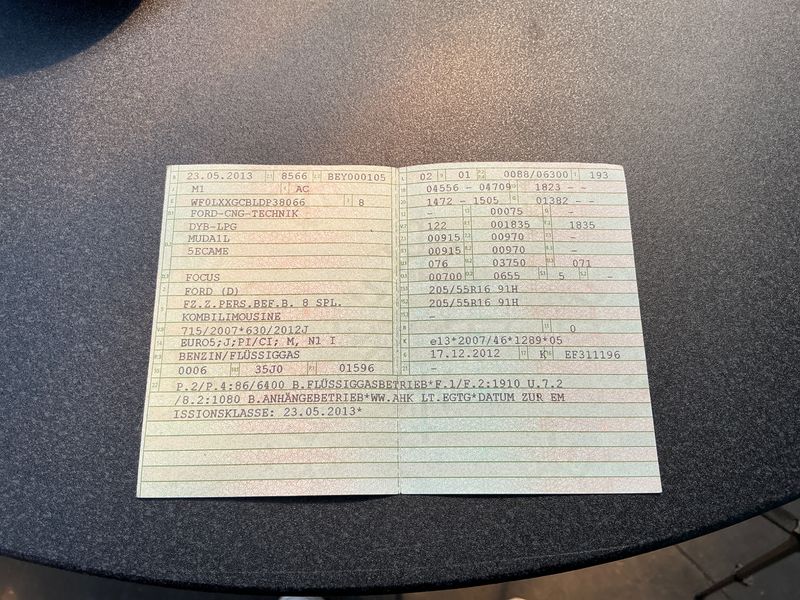 23.05.2013 8566 BEY000105
M1 AC
WF0LXXGCBLDP38066 8
FORD-CNG-TECHNIK
DYB-LPG
MUDA1L
5ECAME
FOCUS
FORD (D)
FZ.Z.PERS.BEF.B. 8 SPL.
KOMBILIMOUSINE
715/2007*630/2012J
EURO5;J;PI/CI; M, N1 I
BENZIN/FLÜSSIGGAS
0006 35J0 01596
02 01 0088/06300 193
04556 - 04709 1823 - -
1472 - 1505 01382 - -
- 00075 -
122 001835 1835
00915 00970 -
00915 00970 -
076 03750 071
00700 0655 5 -
205/55R16 91H
205/55R16 91H
-
- 0
e13*2007/46*1289*05
17.12.2012 K EF311196
-
P.2/P.4:86/6400 B.FLÜSSIGGASBETRIEB*F.1/F.2:1910 U.7.2
/8.2:1080 B.ANHÄNGEBETRIEB*WW.AHK LT.EGTG*DATUM ZUR EM
ISSIONSKLASSE: 23.05.2013*